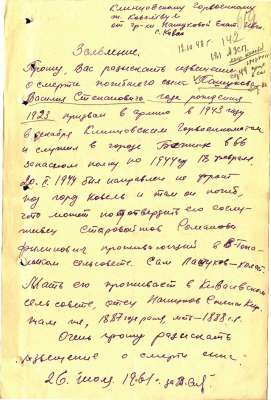 Клинцовскому Горвоенкому
т. Ковалтвук
от гр-ки Пашуковой Екат.
с. Киваи
12.10.48 г.
142
Заявление.
Прошу, Вас разыскать извещение
о смерти погибшего сына Пашукова
Василия Степановича года рождения
1923, призван в армию в 1943 году
в декабре Клинцовским Горвоенкоматом
и служил в городе в 66
запасном полку по 1944 год 18 февраля,
20. II. 1944 был направлен на фронт
под город Ковель и там он погиб,
что может подтвердить его сослу-
живец Старовойтов Романов
проживающий в
сельсовете. Сам Пашуков - холост.
Мать его проживает в Киваевском
сельсовете, отец Пашуков
1887 года рожд, мать - 1888 г. р.
Очень прошу разыскать
извещение о смерти сына.
26. июля. 1961 г.